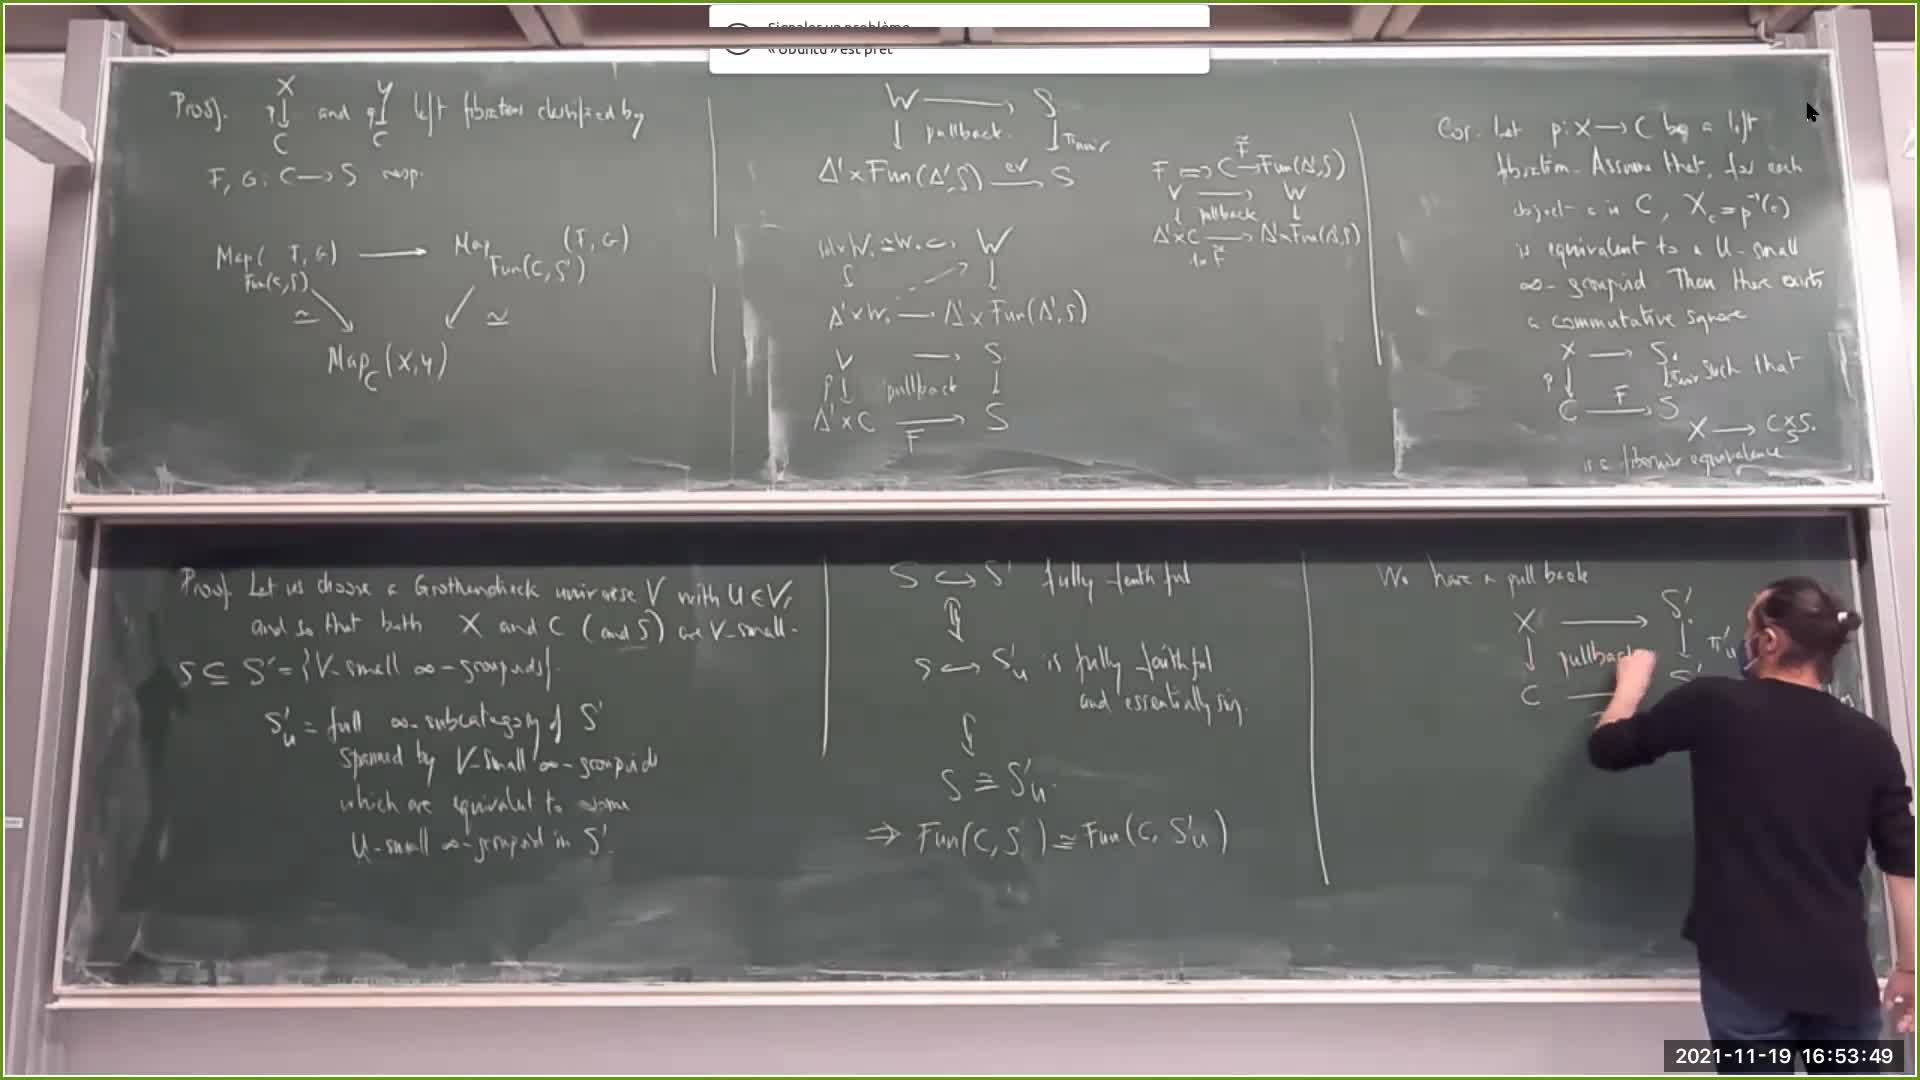 Signaler un problème
« Ubuntu » est prêt
Proof. X p↓ C and Y q↓ C left fibrations classified by
F, G: C → S resp.
Map_{Fun(C,S)}(F, G) → Map_{Fun(C,S')}(F, G)
≃ ↘ ↙ ≃
Map_C(X,Y)
W → S.
↓ pullback ↓ π_univ
Δ¹×Fun(Δ¹,S) —ev→ S
W. ↪ W
Δ¹×W. → Δ¹×Fun(Δ¹,S)
V → S.
p↓ pullback ↓
Δ¹×C —F→ S
F ⟺ C —F̃→ Fun(Δ¹,S)
V → W
↓ pullback ↓
Δ¹×C → Δ¹×Fun(Δ¹,S)
1×F̃
Cor. Let p: X → C be a left
fibration. Assume that, for each
object c in C, X_c = p⁻¹(c)
is equivalent to a U-small
∞-groupoid. Then there exists
a commutative square
X → S.
p↓ ↓π_univ such that
C —F→ S
X → C×_S S.
is a fibrewise equivalence
Proof. Let us choose a Grothendieck universe V with U∈V,
and so that both X and C (and S) are V-small.
S ⊆ S' = {V-small ∞-groupoids}.
S'_U = full ∞-subcategory of S'
spanned by V-small ∞-groupoids
which are equivalent to some
U-small ∞-groupoid in S'.
S ↪ S' fully faithful
⇓
S ↪ S'_U is fully faithful
and essentially surj.
⇓
S ≃ S'_U.
⇒ Fun(C, S) ≃ Fun(C, S'_U)
We have a pullback
X → S'.
↓ pullback ↓ π'_U
C → S'
2021-11-19 16:53:49